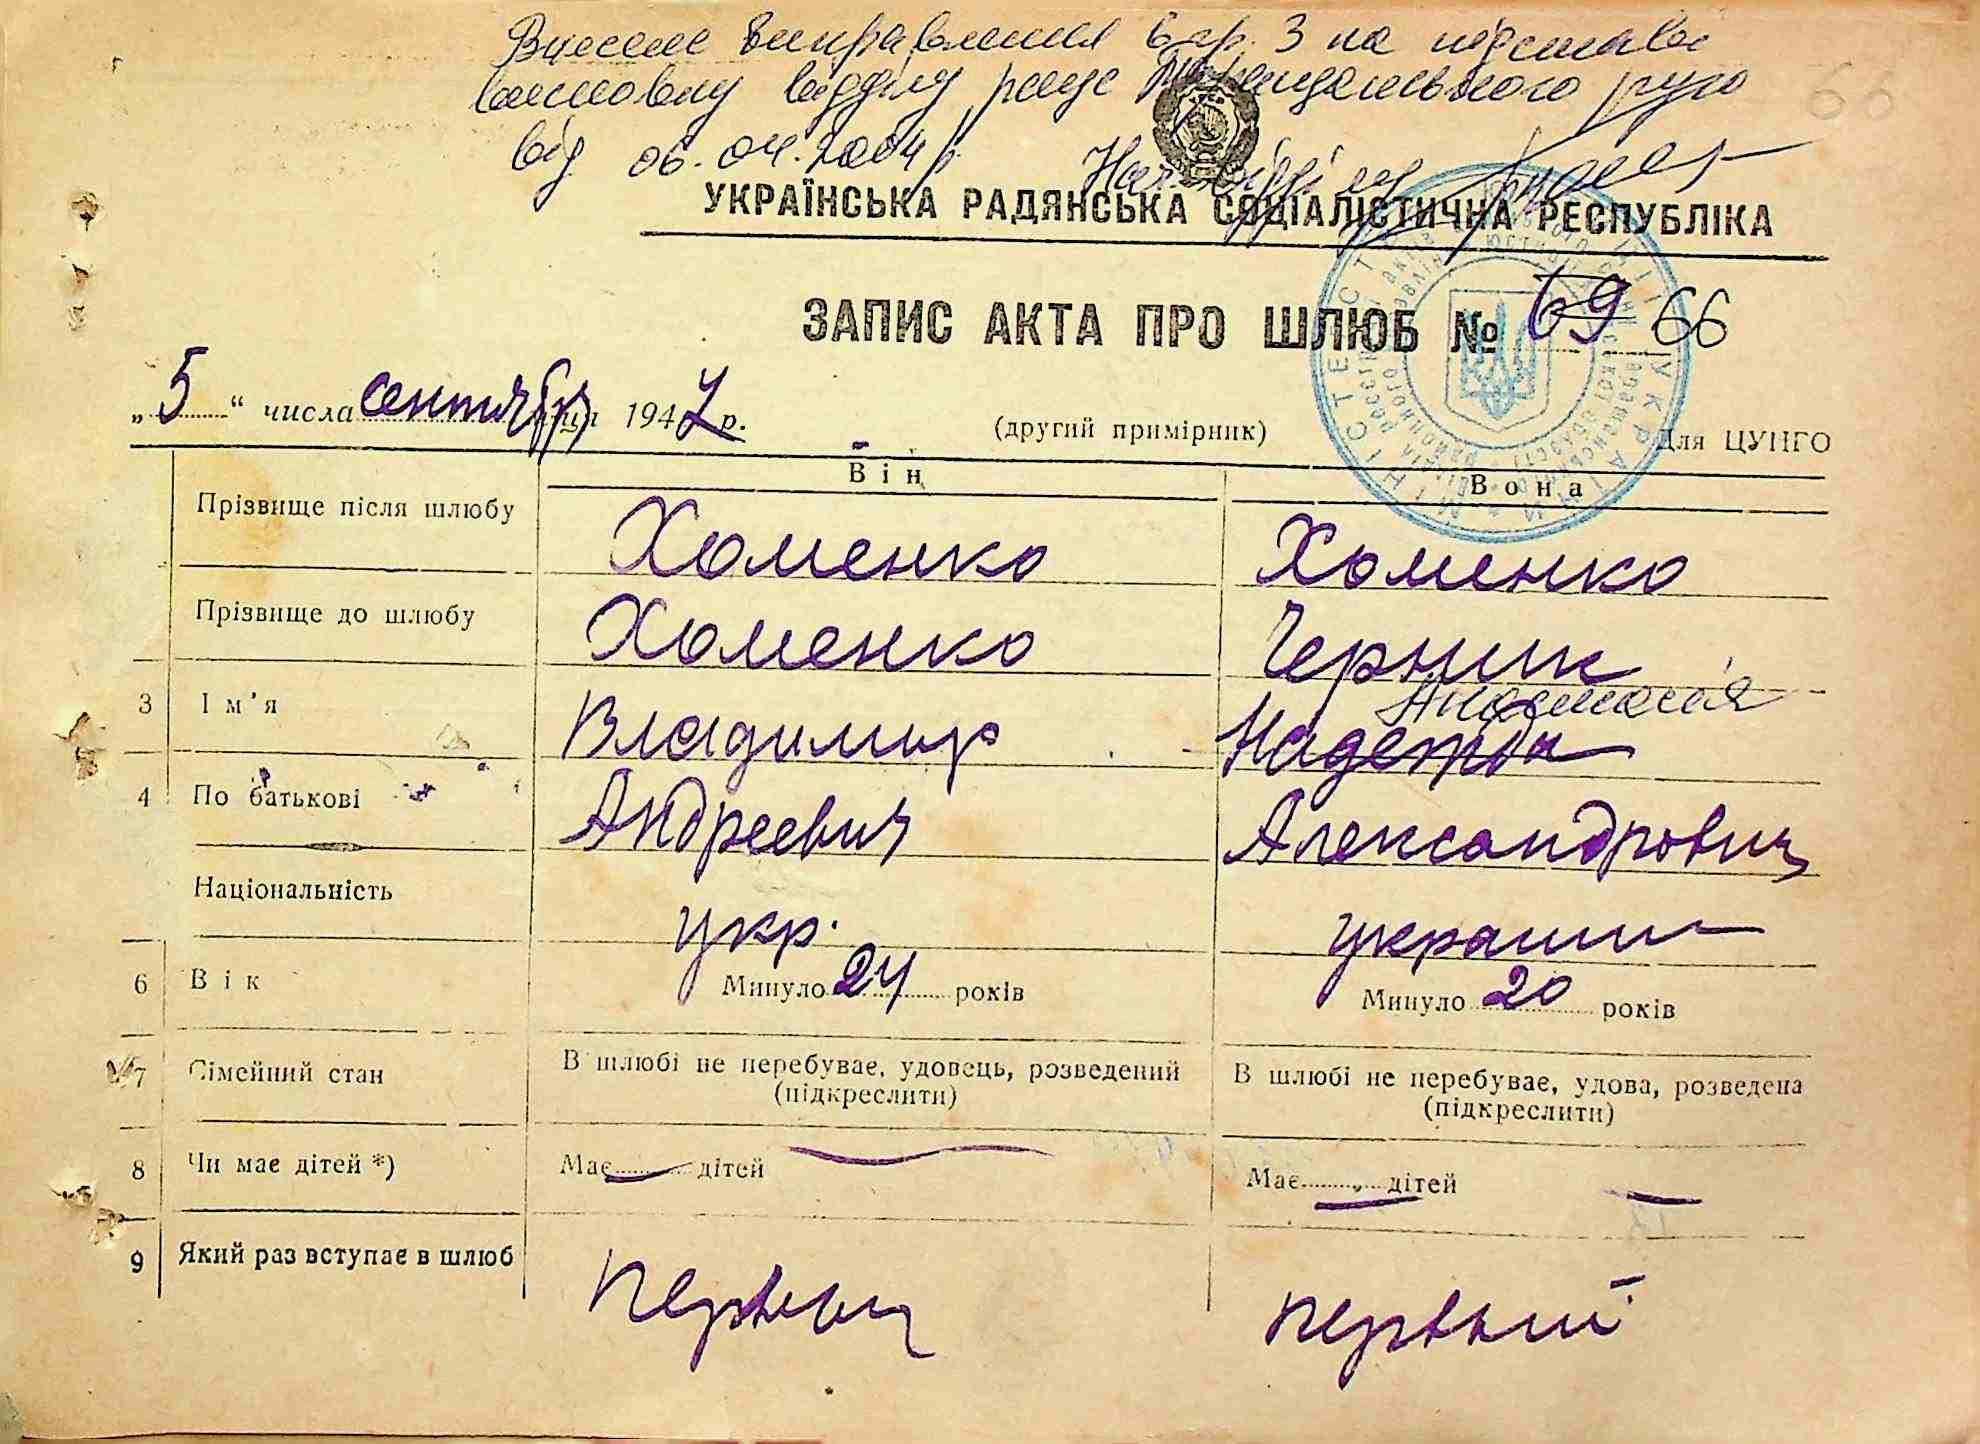 Внесене виправлення в гр. 3 на підставі
висновку відділу рацс Таращанського РУЮ
від 06.04.2004 р. Нач. відділу
66
УКРАЇНСЬКА РАДЯНСЬКА СОЦІАЛІСТИЧНА РЕСПУБЛІКА
ЗАПИС АКТА ПРО ШЛЮБ № 69 66
„5“ числа сентября 1947 р. (другий примірник) Для ЦУНГО
Він Вона
Прізвище після шлюбу Хоменко Хоменко
Прізвище до шлюбу Хоменко Черник
Анастасія
3 Ім'я Владимир Надежда
4 По батькові Андреевич Александрович
Національність укр. украин
6 Вік Минуло 24 років Минуло 20 років
7 Сімейний стан В шлюбі не перебуває, удовець, розведений (підкреслити) В шлюбі не перебуває, удова, розведена (підкреслити)
8 Чи має дітей *) Має дітей Має дітей
9 Який раз вступає в шлюб первый первый